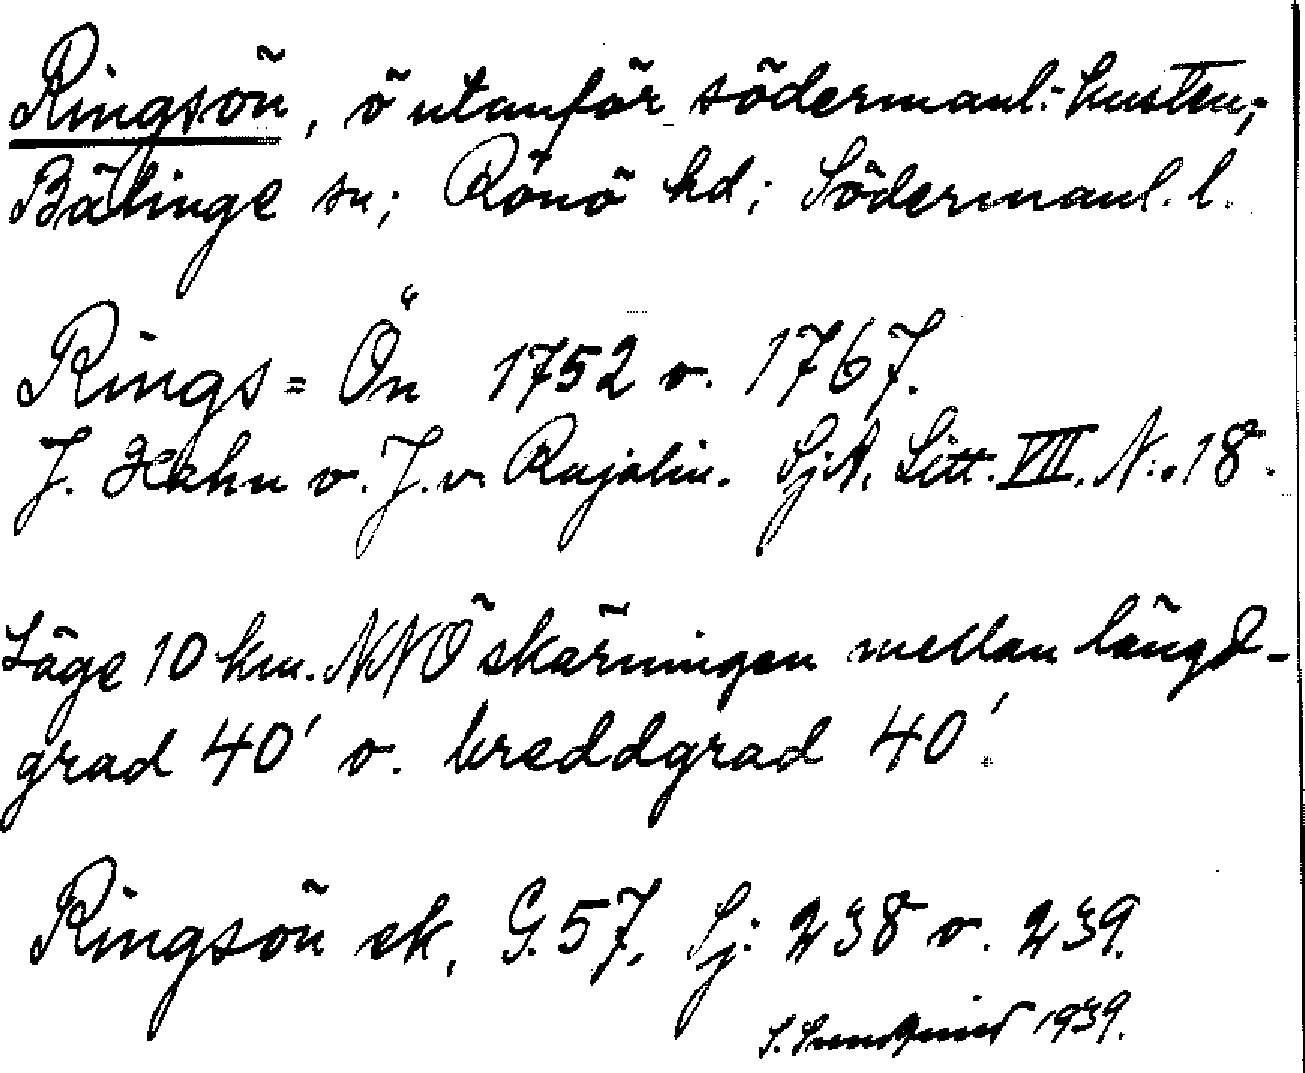 Ringsön, ö utanför södermanl. kusten,
Bälinge sn; Rönö hd; Södermanl. l.
Rings = Ön 1752 o. 1767.
J. Hahn o. J. v. Rajalin. SjA. Litt. VII. N:o 18.
Läge 10 km. NNÖ skärningen mellan längd-
grad 40' o. breddgrad 40'.
Ringsön ek. G. 57. Sj: 238 o. 239.
S. Sundqvist 1939.